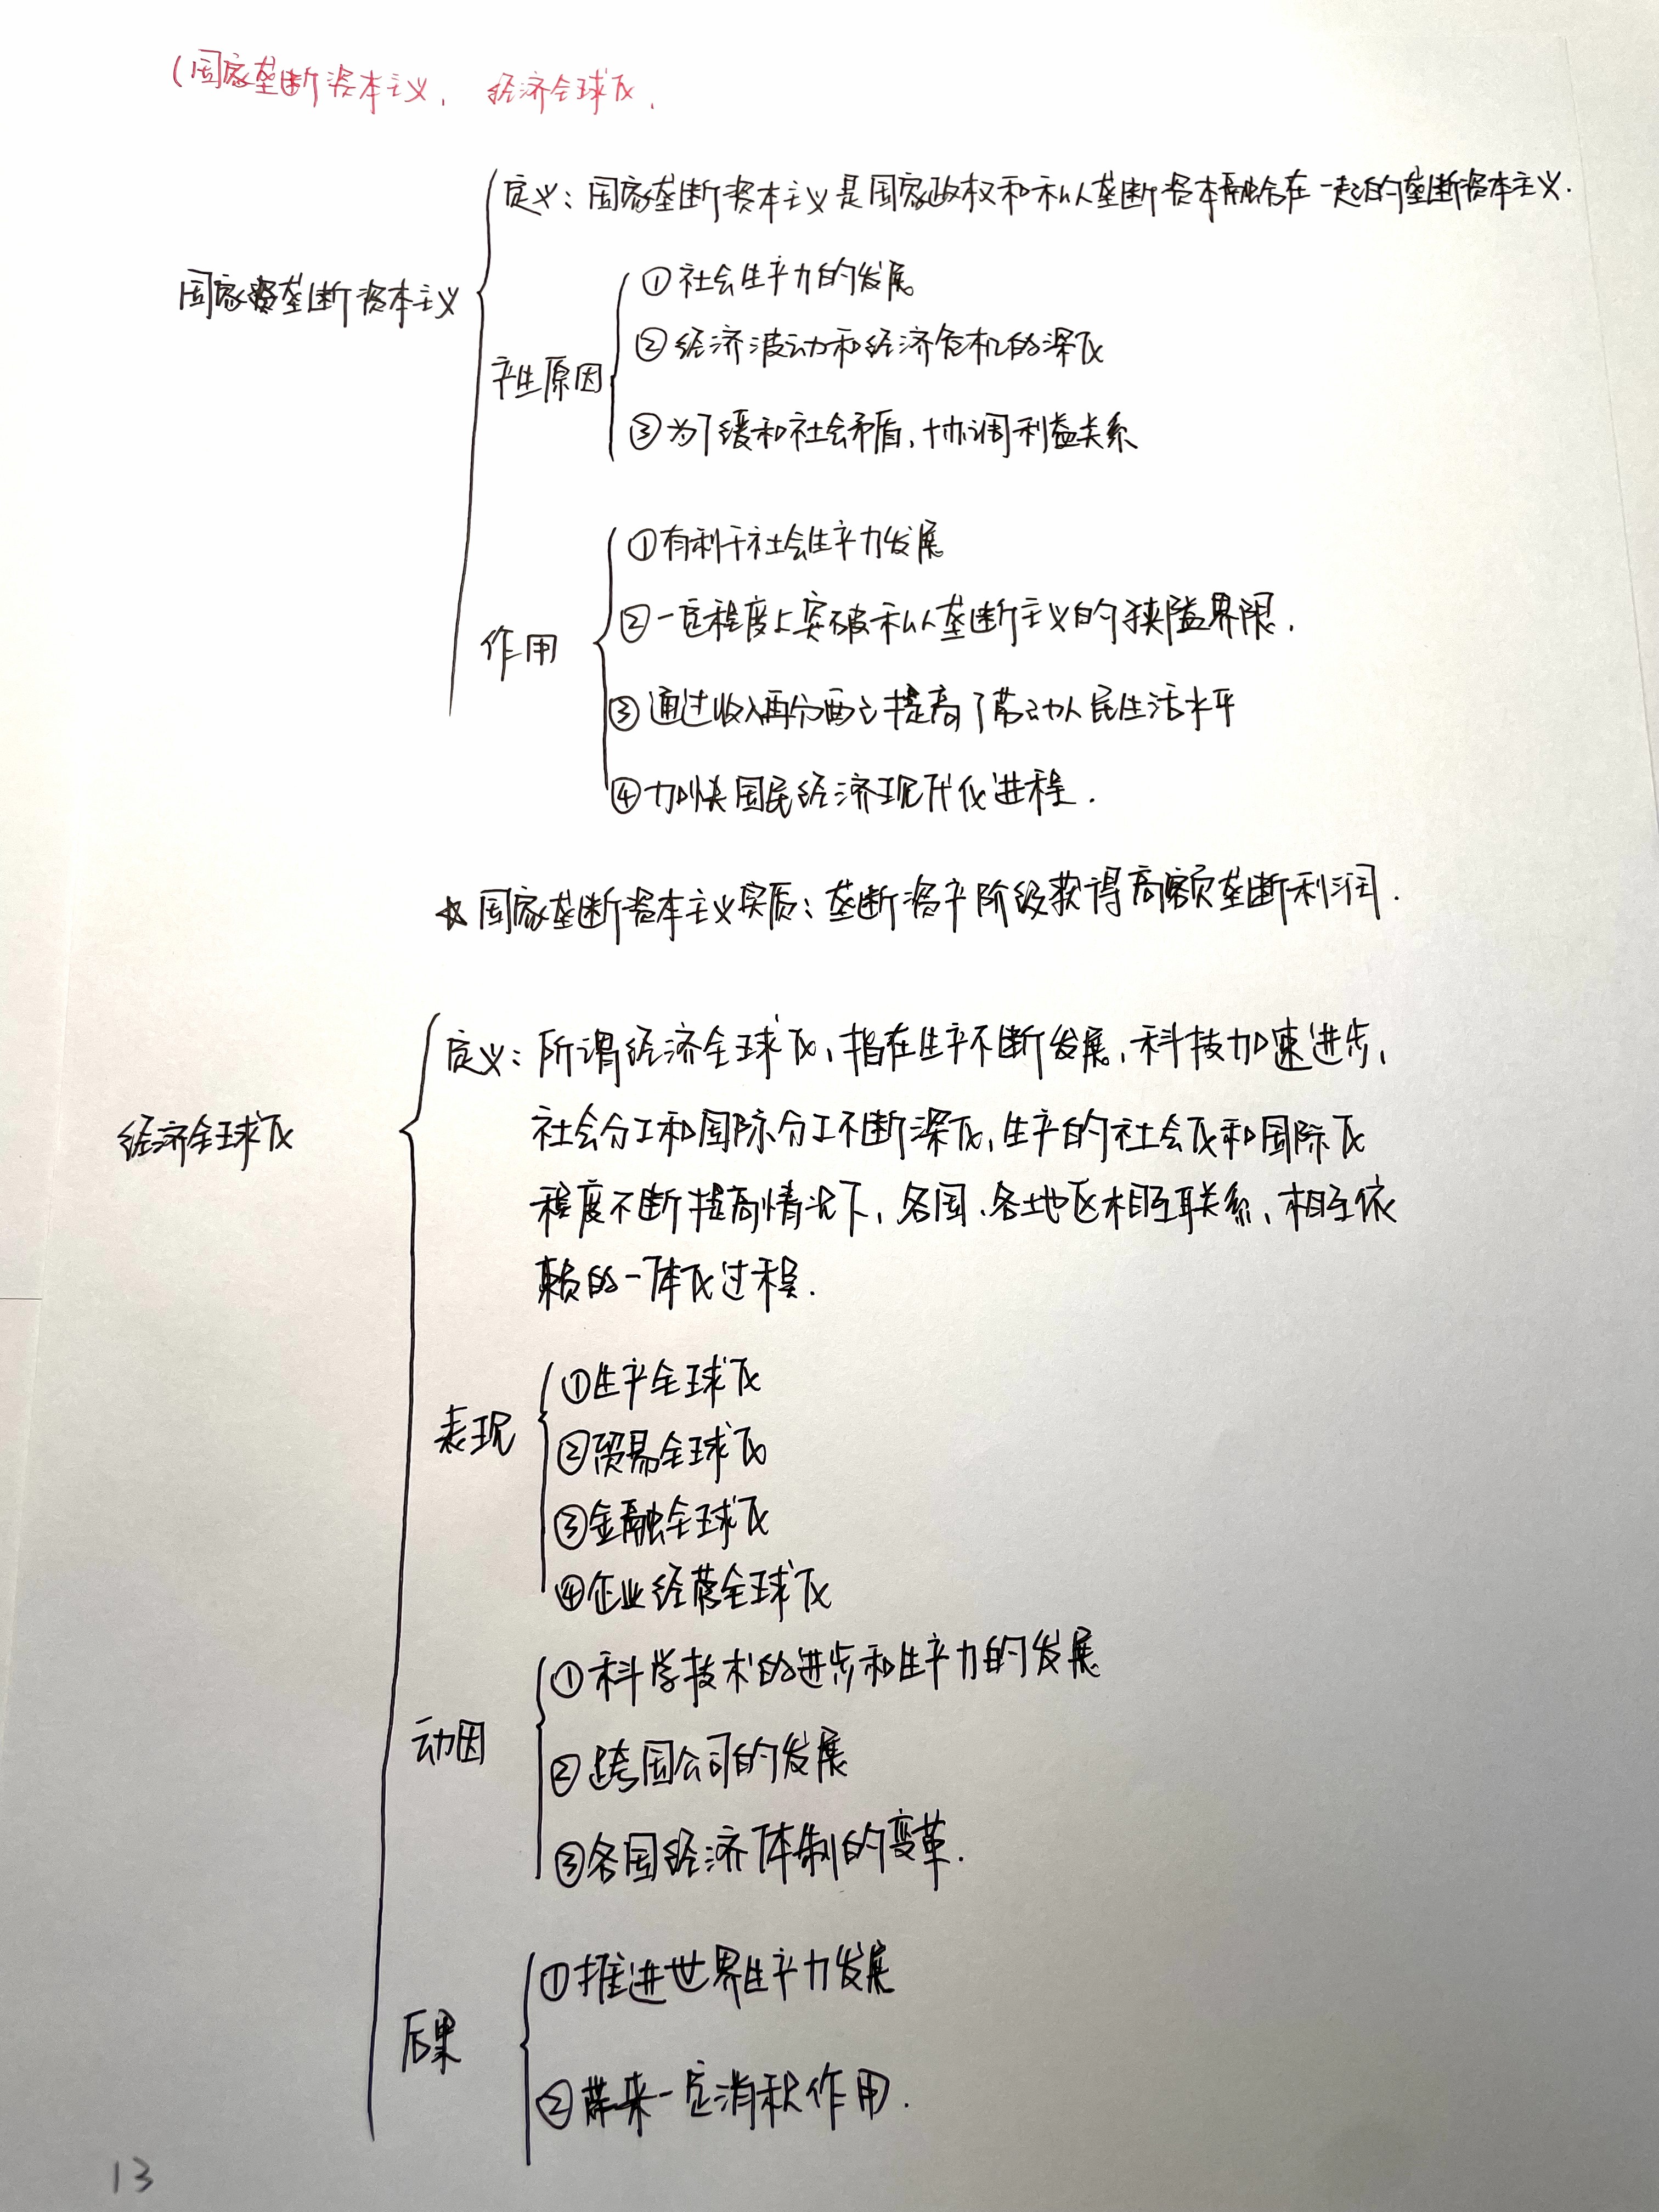 (国家垄断资本主义、经济全球化、
国家垄断资本主义
定义：国家垄断资本主义是国家政权和私人垄断资本融合在一起的垄断资本主义.
产生原因
①社会生产力的发展
②经济波动和经济危机的深化
③为了缓和社会矛盾,协调利益关系
作用
①有利于社会生产力发展
②一定程度上突破私人垄断主义的狭隘界限.
③通过收入再分配、提高了劳动人民生活水平
④加快国民经济现代化进程.
☆国家垄断资本主义实质：垄断资产阶级获得高额垄断利润.
经济全球化
定义：所谓经济全球化、指在生产不断发展、科技加速进步、
社会分工和国际分工不断深化、生产的社会化和国际化
程度不断提高情况下、各国、各地区相互联系、相互依
赖的一体化过程.
表现
①生产全球化
②贸易全球化
③金融全球化
④企业经营全球化
动因
①科学技术的进步和生产力的发展
②跨国公司的发展
③各国经济体制的变革.
后果
①推进世界生产力发展
②带来一定消积作用.
13